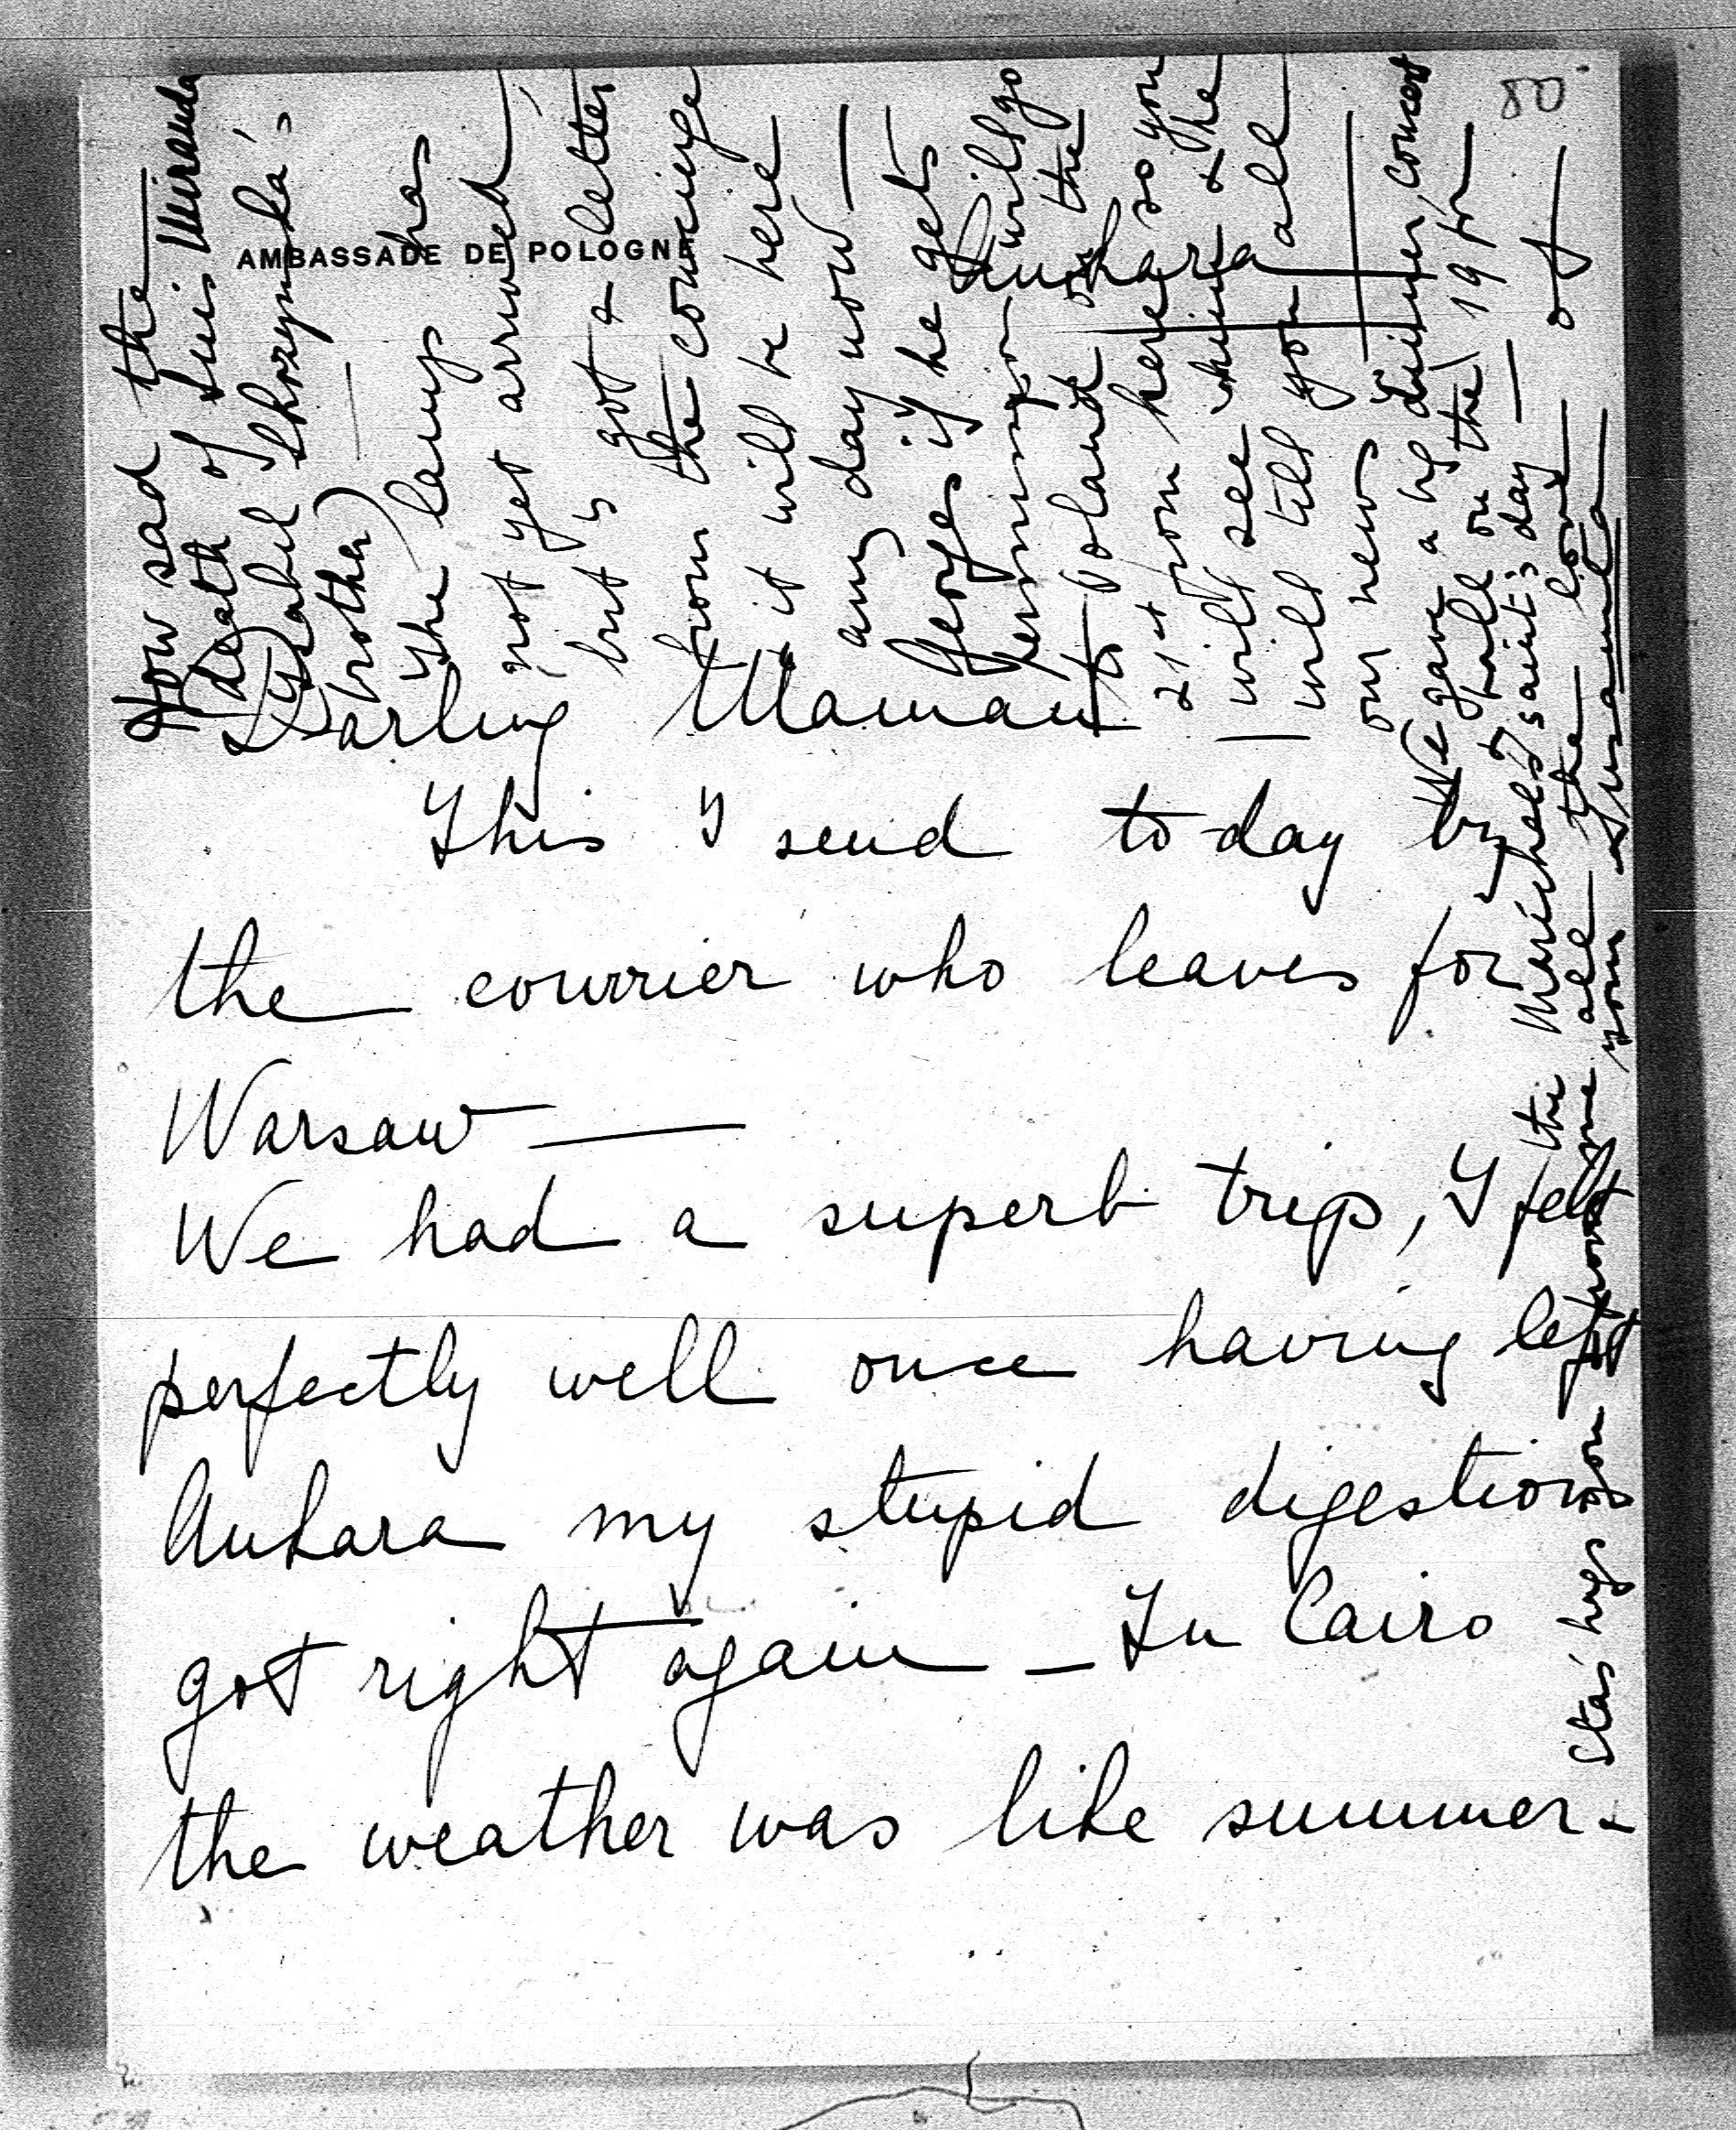 80.
AMBASSADE DE POLOGNE
Ankara
Darling Maman
This I send to-day by
the courrier who leaves for
Warsaw —
We had a superb trip, I felt
perfectly well once having left
Ankara my stupid digestion
got right again — In Cairo
the weather was like summer.
How sad the
death of Luis Miranda
(Isabel Skrzynska's
brother) —
The lamp has
not yet arrived,
but I got a letter
from the concierge
it will be here
any day now —
George if he gets
permission will go
to Poland on the
21st from here so you
will see him & he
will tell you all
our news
We gave a big dinner, concert
& ball on the 19 for
the Marichal's saint's day —
all the love of
your Susanula
Stas' hugs you